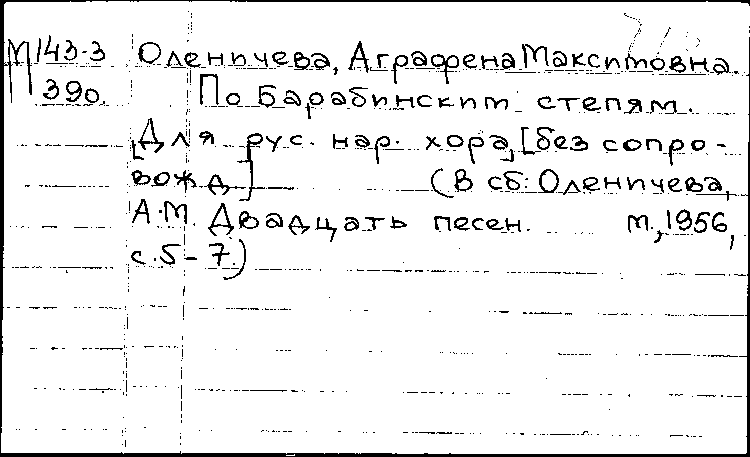 М 143-3 Оленичева, Аграфена Максимовна.
390. По Барабинским степям.
[Для рус. нар. хора, [без сопро-
вожд] (В сб: Оленичева,
А.М. Двадцать песен. М., 1956,
с. 5-7.)